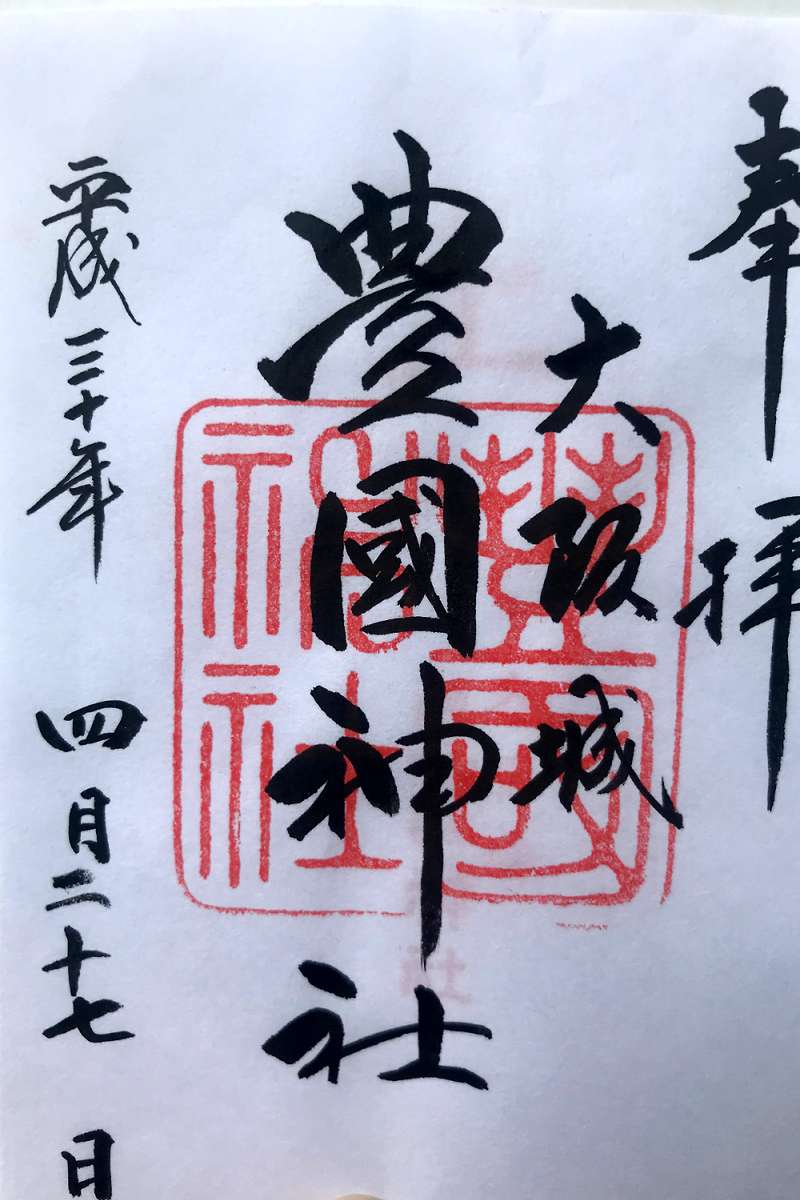 奉拝
大阪城
豊國神社
平成三十年 四月二十七日
豊國神社